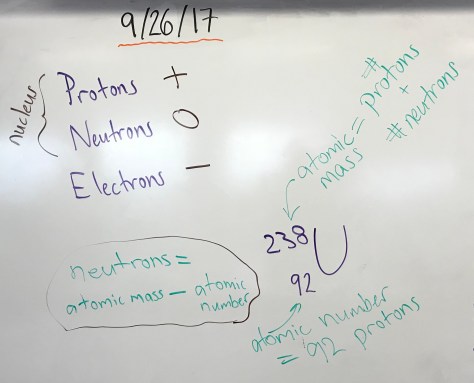 9/26/17
nucleus
Protons +
Neutrons 0
Electrons −
atomic mass = # protons
+
# neutrons
238
92 U
neutrons =
atomic mass − atomic
number
atomic number
= 92 protons